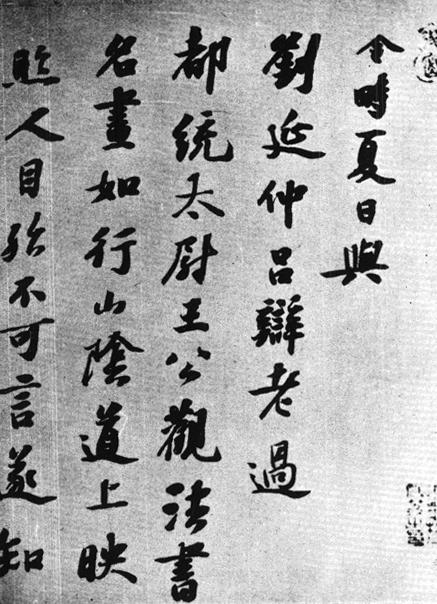 時夏日與
劉延仲呂辯老過
都統太尉王公觀法書
名畫如行山陰道上映
照人目殆不可言遂知